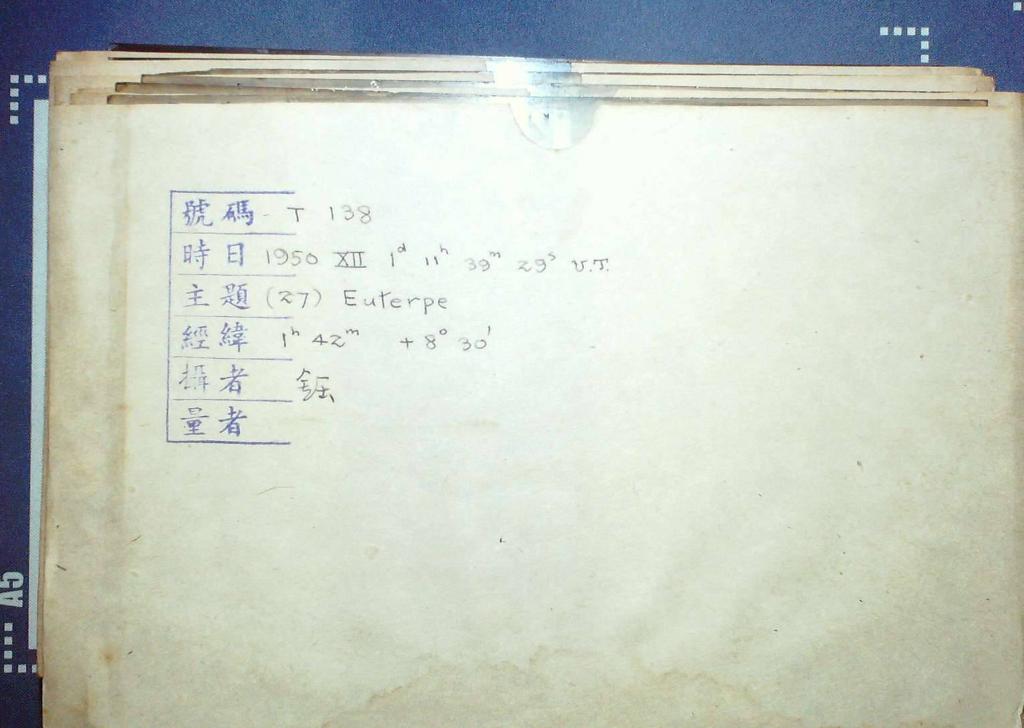 號碼 - T 138
時日 1950 XII 1ᵈ 11ʰ 39ᵐ 29ˢ U.T.
主題 (27) Euterpe
經緯 1ʰ 42ᵐ + 8° 30'
攝者
量者
A5